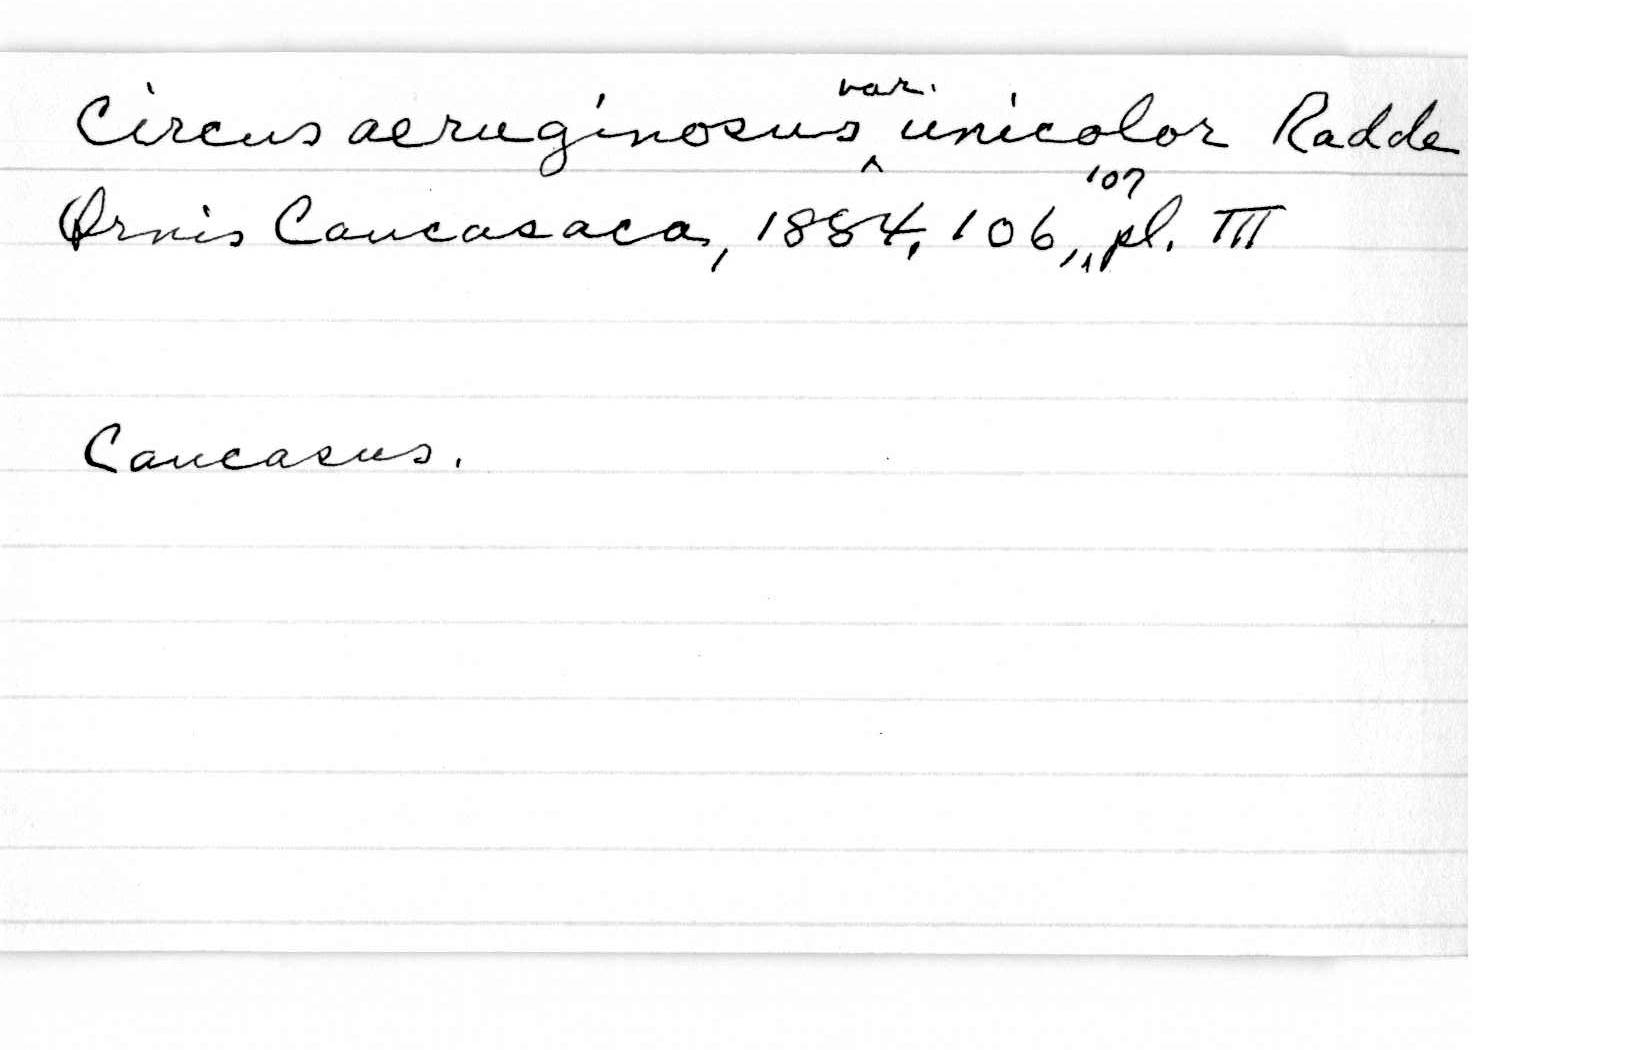 Circus aeruginosus var. unicolor Radde
Ornis Caucasaca, 1884, 106, 107, pl. III
Caucasus.